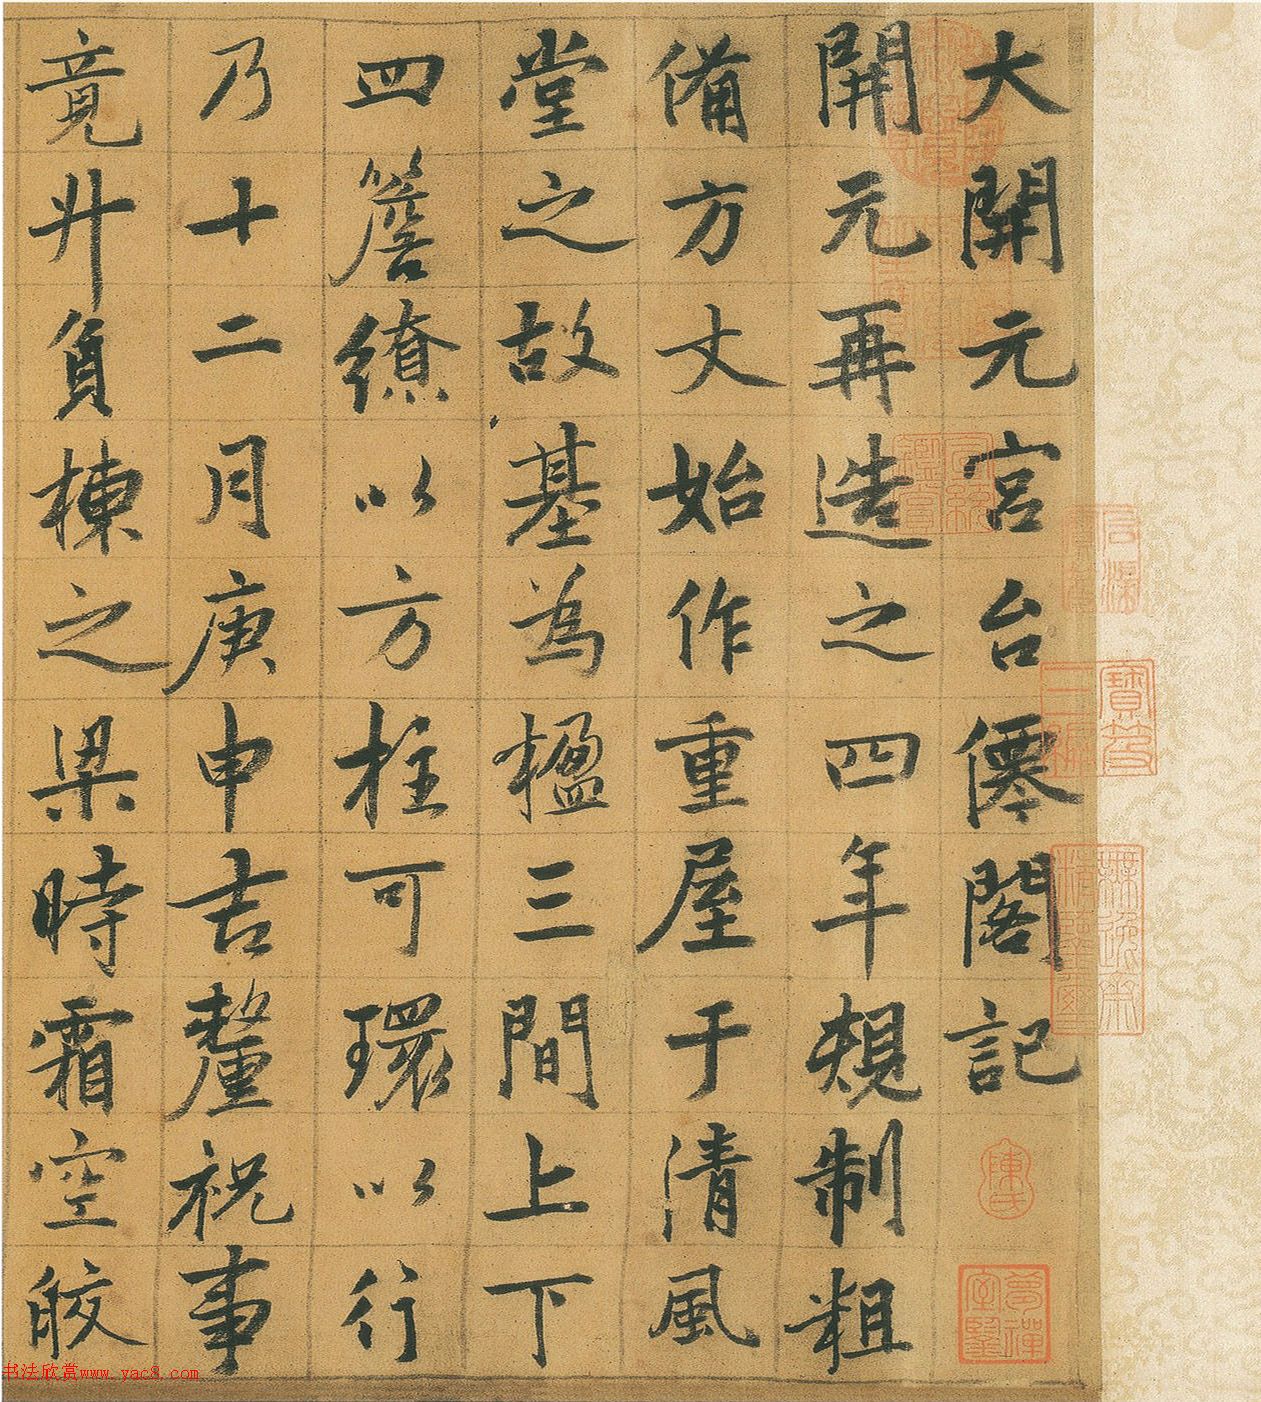 大開元宮台僊閣記
開元再造之四年規制粗
備方丈始作重屋于清風
堂之故基為楹三間上下
四簷繚以方柱可環以行
乃十二月庚申吉釐祝事
竟升負棟之梁時霜空皎
陳氏
书法欣赏www.yac8.com